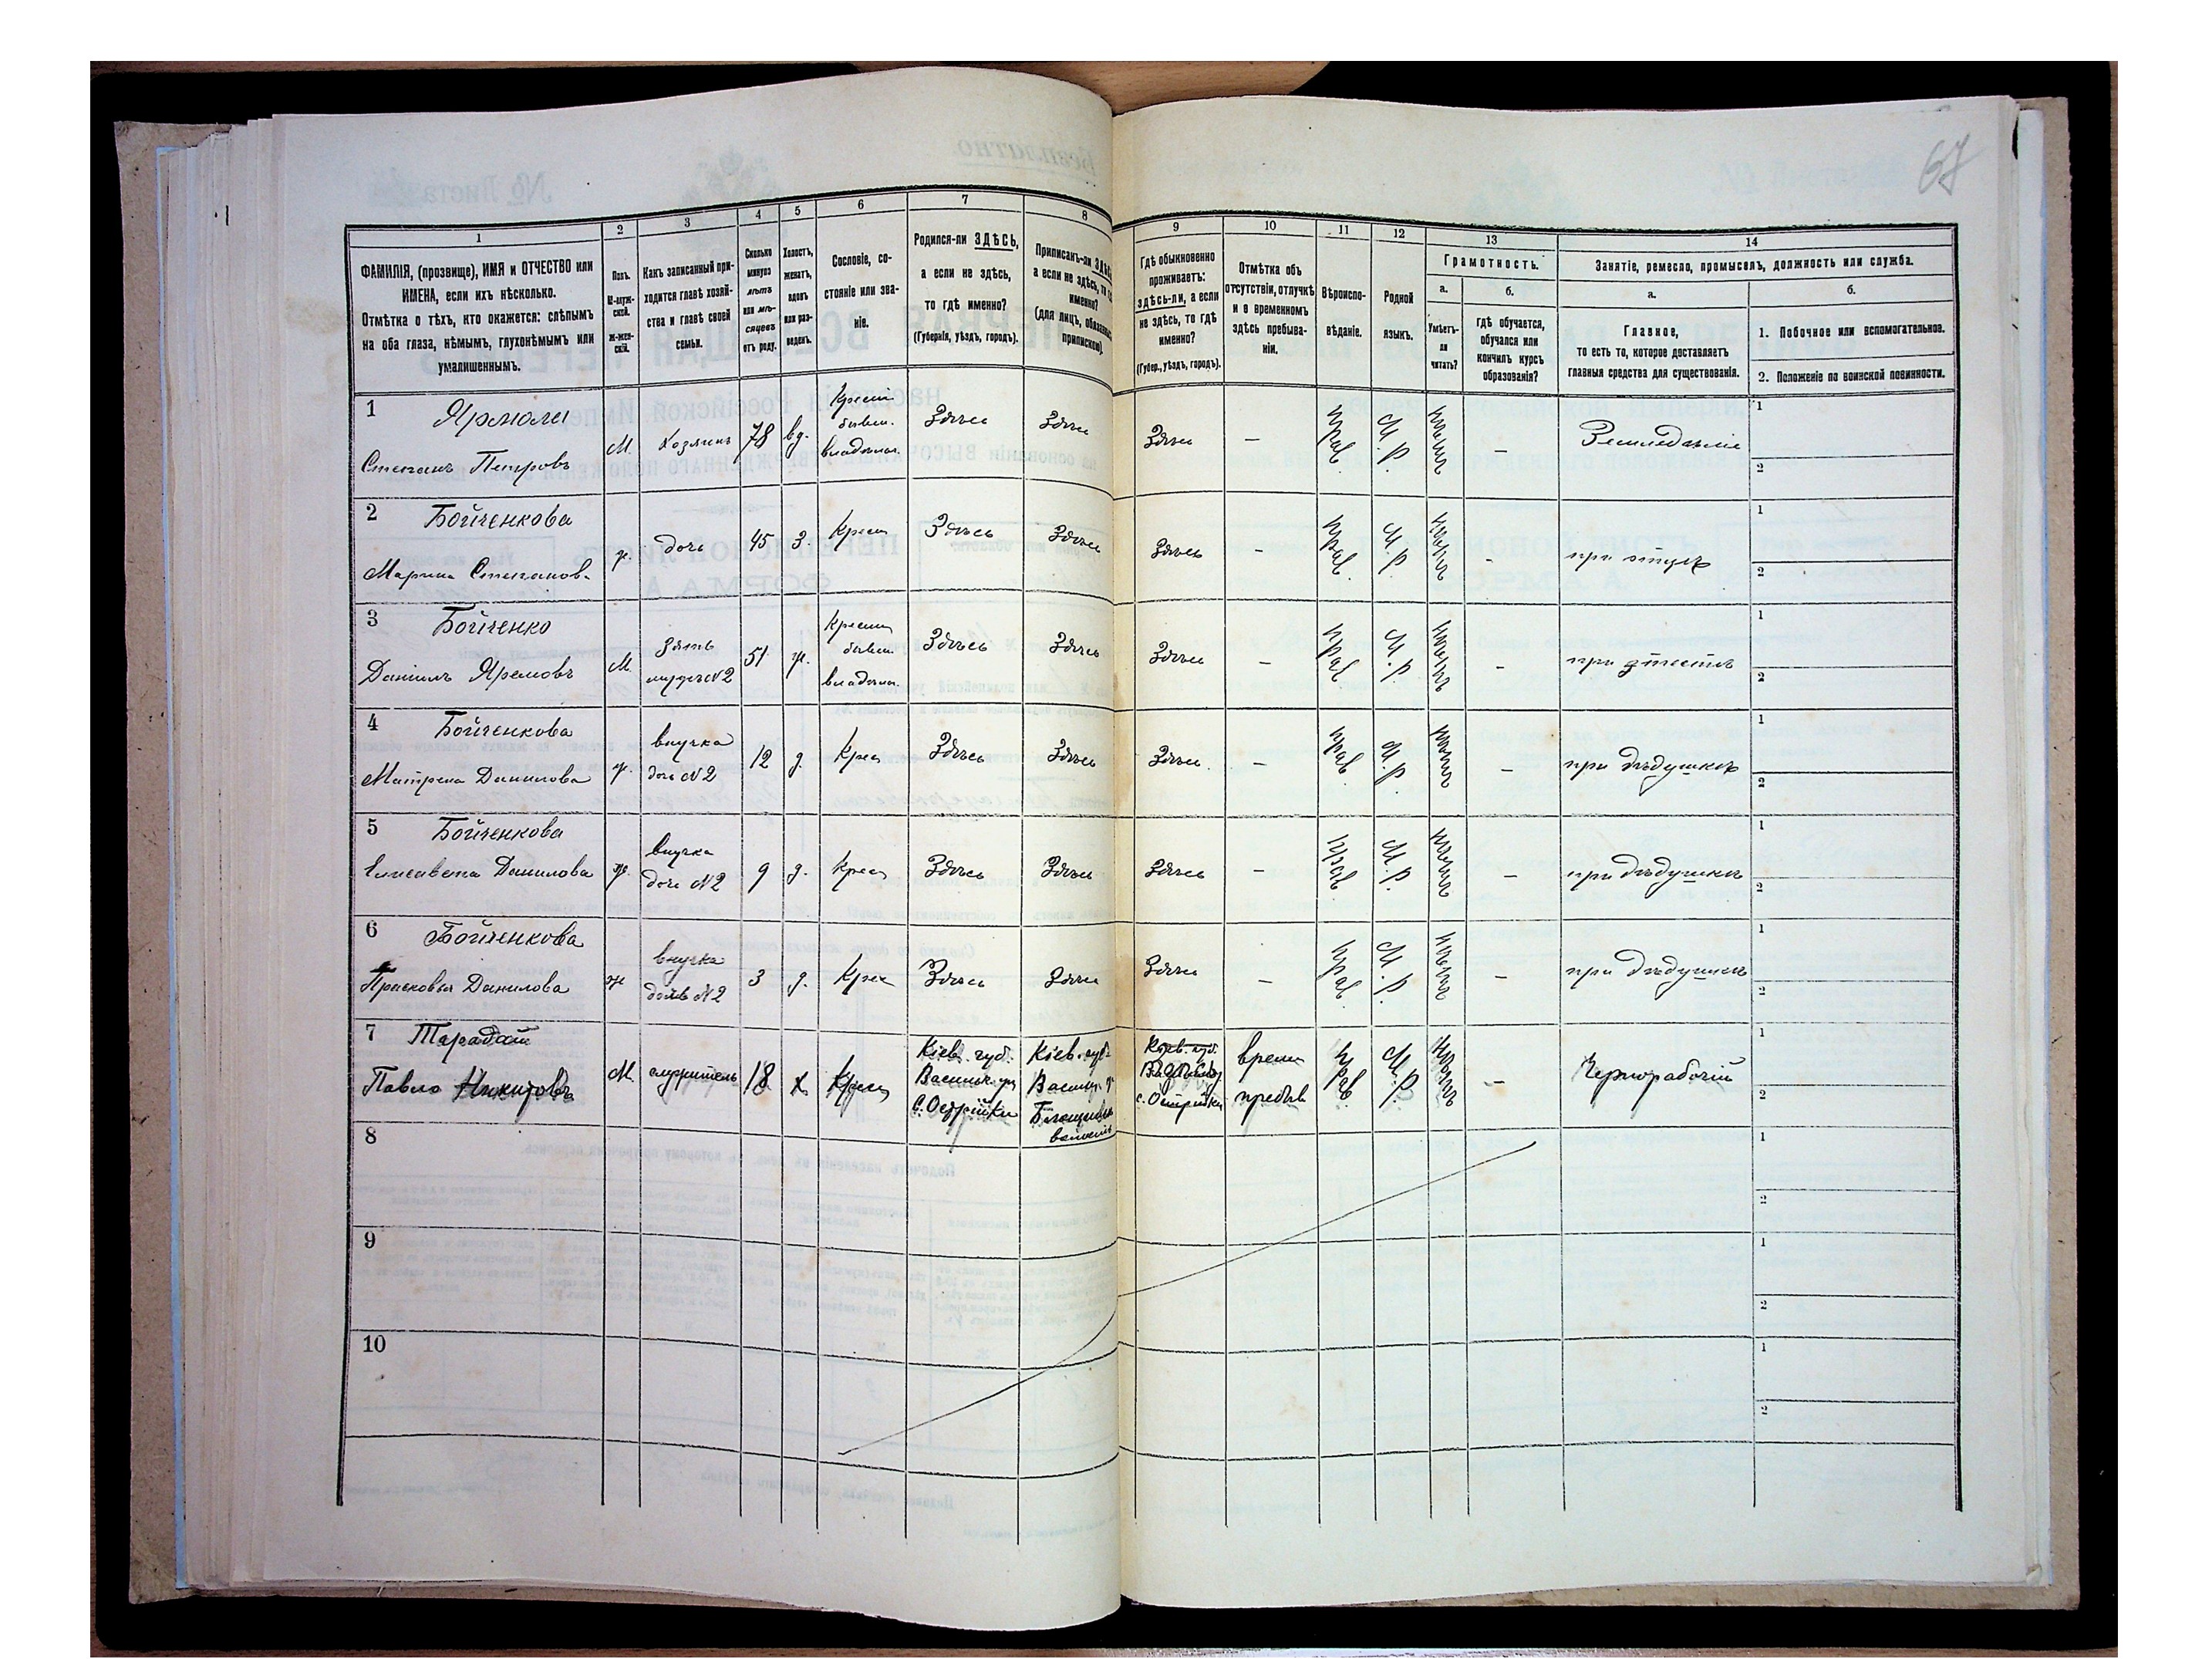 67
1 2 3 4 5 6 7 8 9 10 11 12 13 14
ФАМИЛІЯ, (прозвище), ИМЯ и ОТЧЕСТВО или
ИМЕНА, если ихъ нѣсколько.
Отмѣтка о тѣхъ, кто окажется: слѣпымъ
на оба глаза, нѣмымъ, глухонѣмымъ или
умалишеннымъ.
Полъ.
М-муж-
ской.
ж-жен-
скій.
Какъ записанный при-
ходится главѣ хозяй-
ства и главѣ своей
семьи.
Сколько
минуло
лѣтъ
или мѣ-
сяцевъ
отъ роду.
Холостъ,
женатъ,
вдовъ
или раз-
веденъ.
Сословіе, со-
стояніе или зва-
ніе.
Родился-ли ЗДѢСЬ,
а если не здѣсь,
то гдѣ именно?
(Губернія, уѣздъ, городъ).
Приписанъ-ли
а если не здѣсь, то
именно?
(для лицъ,
припискою).
Гдѣ обыкновенно
проживаетъ:
здѣсь-ли, а если
не здѣсь, то гдѣ
именно?
(Губер., уѣздъ, городъ).
Отмѣтка объ
отсутствіи, отлучкѣ
и о временномъ
здѣсь пребыва-
ніи.
Вѣроиспо-
вѣданіе.
Родной
языкъ.
Грамотность.
а.
Умѣетъ-
ли
читать?
б.
гдѣ обучается,
обучался или
кончилъ курсъ
образованія?
Занятіе, ремесло, промыселъ, должность или служба.
а.
Главное,
то есть то, которое доставляетъ
главныя средства для существованія.
б.
1. Побочное или вспомогательное.
2. Положеніе по воинской повинности.
1 Ярмола
Степанъ Петровъ М. хозяинъ 78 вд. Крест. бывш. владѣльч. Здѣсь Здѣсь Здѣсь — Прав. М.Р. — Земледѣліе 1 2
2 Бойченкова
Марина Степанова ж. дочь 45 з. Крест Здѣсь Здѣсь Здѣсь — Прав. М.Р. - при отцѣ 1 2
3 Бойченко
Даніилъ Яремовъ М зять мужъ №2 51 ж. Крест бывш. владѣльч. Здѣсь Здѣсь Здѣсь — Прав М.Р - при тестѣ 1 2
4 Бойченкова
Матрена Данилова ж. внучка дочь №2 12 д. Крес Здѣсь Здѣсь Здѣсь — Прав. М.Р. — при дѣдушкѣ 1 2
5 Бойченкова
Елисавета Данилова ж. внучка дочь №2 9 д. Крес Здѣсь Здѣсь Здѣсь — Прав. М.Р. — при дѣдушкѣ 1 2
6 Бойченкова
Прасковья Данилова ж внучка дочь №2 3 д. Крес Здѣсь Здѣсь Здѣсь — Прав. М.Р. — при дѣдушкѣ 1 2
7 Тарадай
Павло Никитовъ М. служитель 18 х. Крес Кіев. губ. Васильк. у с. Острійки Кіев. губ. Васильк. у Кіев. губ. с. Острійки времен пребыв Прав. М.Р. — Чернорабочій 1 2
8 1 2
9 1 2
10 1 2